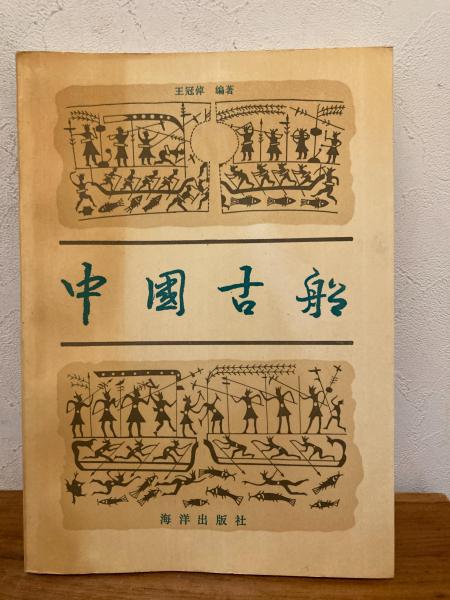 王冠倬 编著
中國古船
海洋出版社